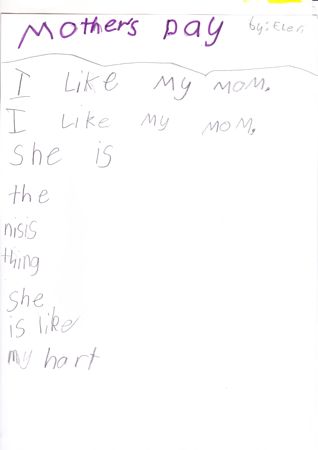 Mothers Day by: Elen
I Like My MOM.
I Like My MOM.
She is
the
nisis
thing
She
is like
my hart